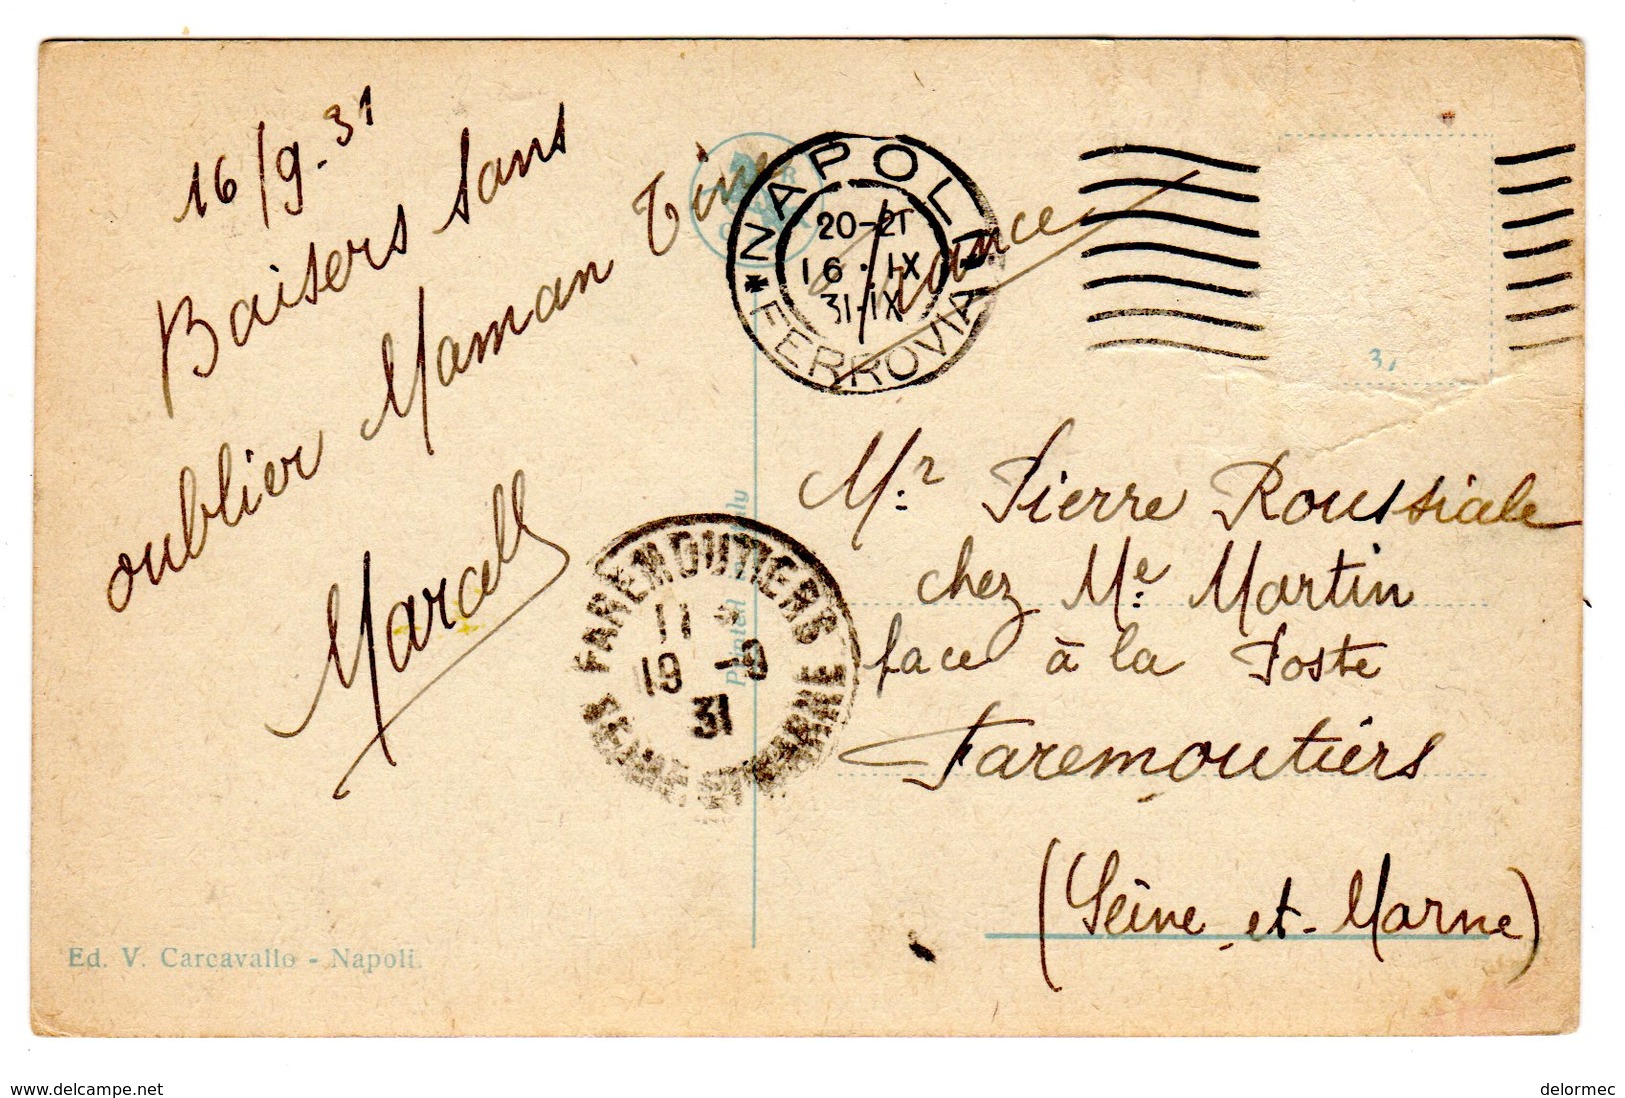 16/9-31
Baisers sans
oublier Maman Tine
Marcell
NAPOLI
20-21
16·IX
31·IX
FERROVIA
France
Mr. Pierre Roussiale
chez Me. Martin
face à la Poste
Faremoutiers
(Seine-et-Marne)
FAREMOUTIERS
11
19 -9
31
SEINE-ET-MARNE
Printed in Italy
31
Ed. V. Carcavallo - Napoli.
www.delcampe.net
delormec